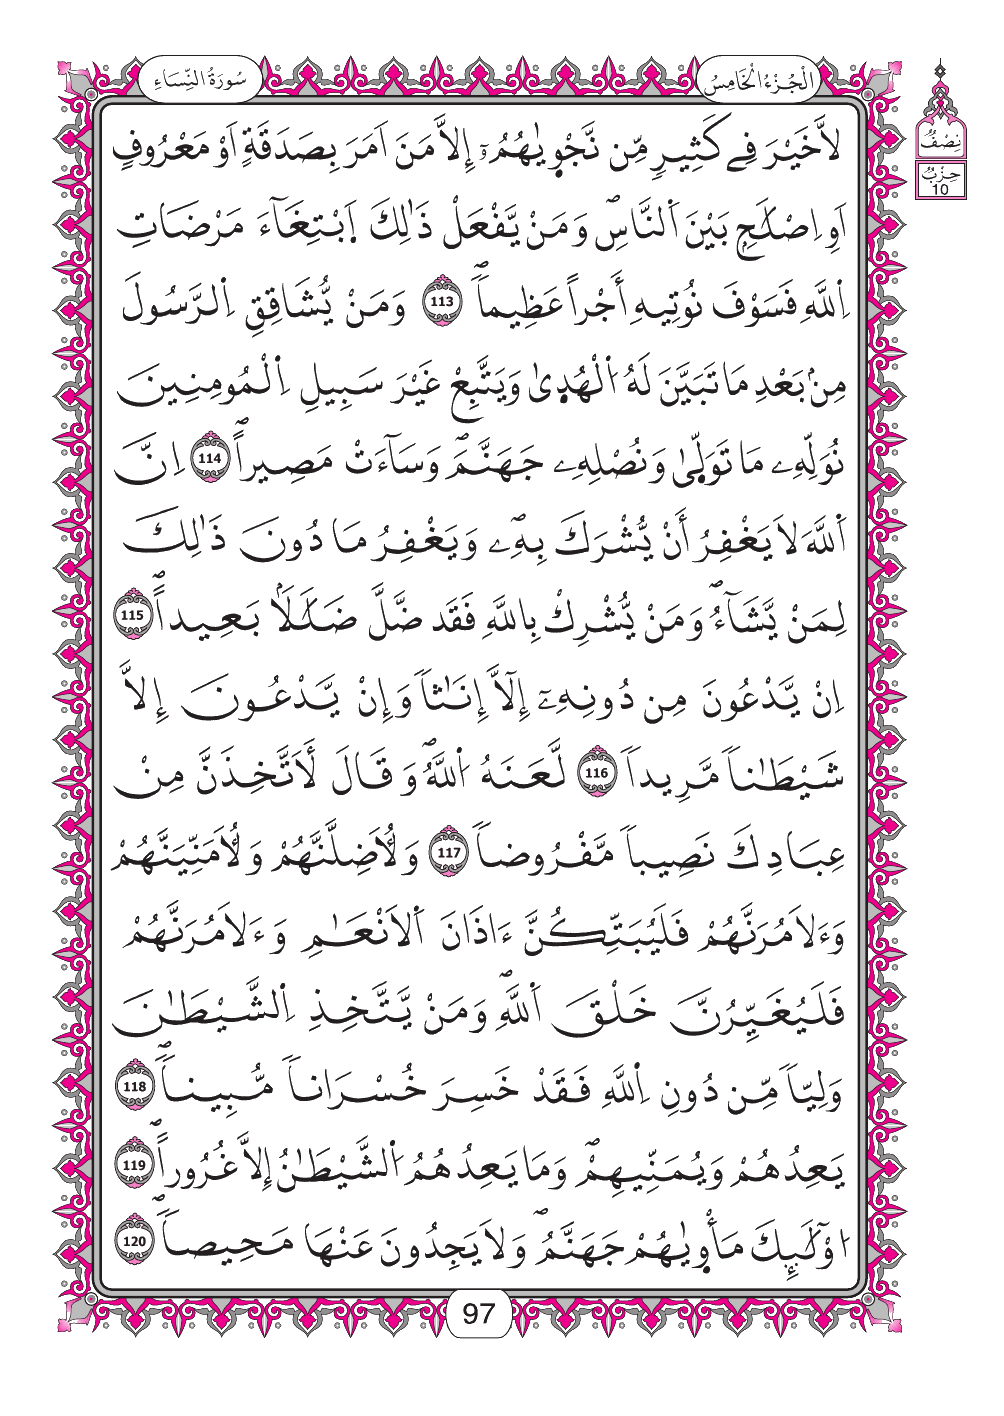 سُورَةُ النِّسَاءِ
الْجُزْءُ الْخَامِسُ
نِصْفُ
حِزْبُ
10
لاَّخَيْرَ فِے كَثِيرٍ مِّن نَّجْوٜيٰهُمُۥٓ إِلاَّ مَنَ اَمَرَ بِصَدَقَةٍ اَوْ مَعْرُوفٍ
اَوِ اِصْلَٰحِۢ بَيْنَ اَ۬لنَّاسِۖ وَمَنْ يَّفْعَلْ ذَٰلِكَ اَ۪بْتِغَآءَ مَرْضَاتِ
اِ۬للَّهِ فَسَوْفَ نُوتِيهِ أَجْراً عَظِيماٗۖ 113 وَمَنْ يُّشَاقِقِ اِ۬لرَّسُولَ
مِنۢ بَعْدِ مَا تَبَيَّنَ لَهُ اُ۬لْهُدٜىٰ وَيَتَّبِعْ غَيْرَ سَبِيلِ اِ۬لْمُومِنِينَ
نُوَلِّهِۦ مَا تَوَلّٜىٰ وَنُصْلِهِۦ جَهَنَّمَۖ وَسَآءَتْ مَصِيراًۖ 114 اِنَّ
اَ۬للَّهَ لاَ يَغْفِرُ أَنْ يُّشْرَكَ بِهِۦۖ وَيَغْفِرُ مَا دُونَ ذَٰلِكَ
لِمَنْ يَّشَآءُۖ وَمَنْ يُّشْرِكْ بِاللَّهِ فَقَد ضَّلَّ ضَلَٰلاَۢ بَعِيداًۖ 115
اِنْ يَّدْعُونَ مِن دُونِهِۦٓ إِلَّآ إِنَٰثاٗ وَإِنْ يَّدْعُونَ إِلاَّ
شَيْطَٰناٗ مَّرِيداٗ 116 لَّعَنَهُ اُ۬للَّهُۖ وَقَالَ لَأَتَّخِذَنَّ مِنْ
عِبَادِكَ نَصِيباٗ مَّفْرُوضاٗ 117 وَلُأَضِلَّنَّهُمْ وَلَأُمَنِّيَنَّهُمْ
وَءَلاَمُرَنَّهُمْ فَلَيُبَتِّكُنَّ ءَاذَانَ اَ۬لاَنْعَٰمِ وَءَلاَمُرَنَّهُمْ
فَلَيُغَيِّرُنَّ خَلْقَ اَ۬للَّهِۖ وَمَنْ يَّتَّخِذِ اِ۬لشَّيْطَٰنَ
وَلِيّاٗ مِّن دُونِ اِ۬للَّهِ فَقَدْ خَسِرَ خُسْرَاناٗ مُّبِيناٗۖ 118
يَعِدُهُمْ وَيُمَنِّيهِمْۖ وَمَا يَعِدُهُمُ اُ۬لشَّيْطَٰنُ إِلاَّ غُرُوراًۖ 119
اُ۟وْلَٰٓئِكَ مَأْوٜيٰهُمْ جَهَنَّمُۖ وَلاَ يَجِدُونَ عَنْهَا مَحِيصاٗۖ 120
97